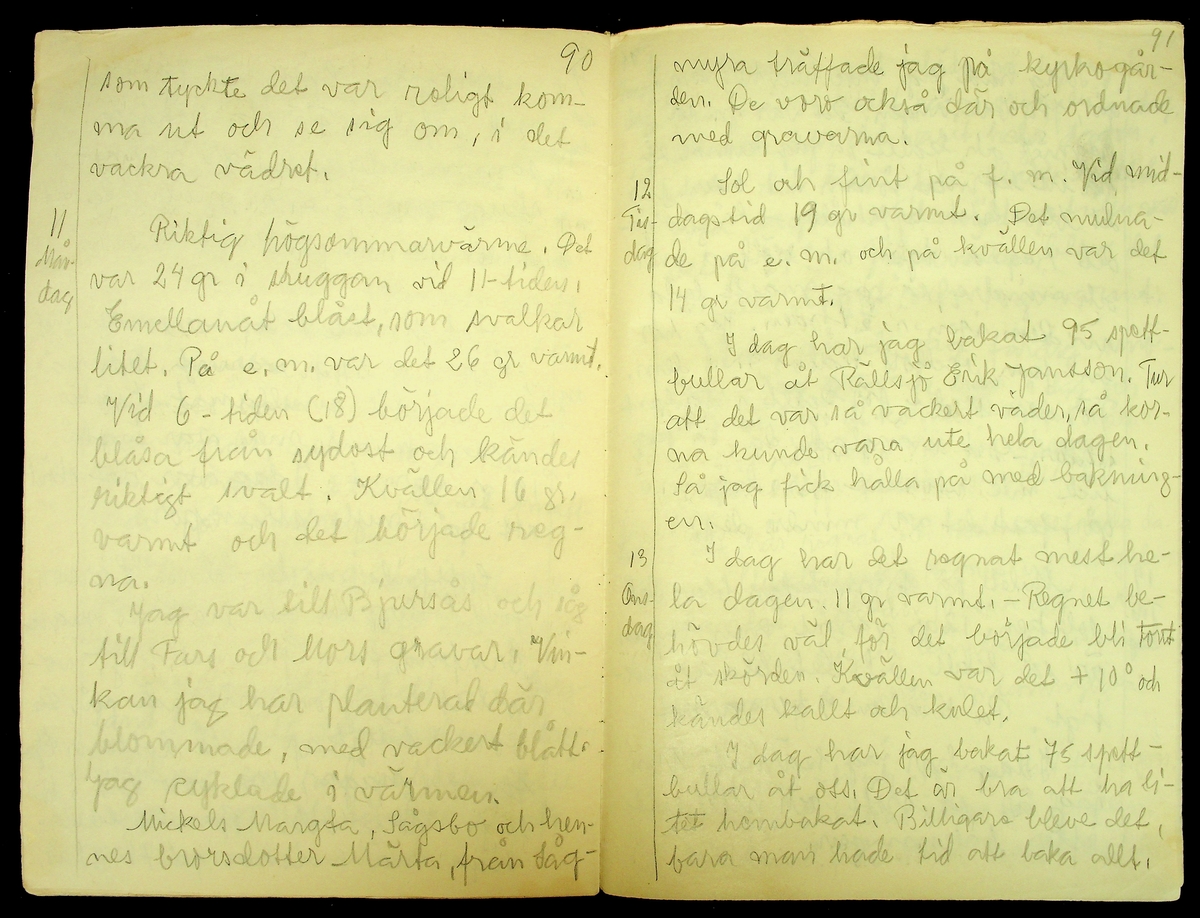 90
som tyckte det var roligt kom-
ma ut och se sig om, i det
vackra vädret.
11
Mån-
dag
Riktig högsommarvärme. Det
var 24 gr i skuggan vid 11-tiden.
Emellanåt blåst, som svalkar
litet. På e. m. var det 26 gr varmt.
Vid 6-tiden (18) började det
blåsa från sydost och kändes
riktigt svalt. Kvällen 16 gr.
varmt och det började reg-
na.
Jag var till Bjursås och såg
till Fars och Mors gravar. Vin-
kan jag har planterat där
blommade, med vackert blått.
Jag cyklade i värmen.
Mickels Margta, Sågsbo och hen-
nes brorsdotter Märta, från Såg-
91
myra träffade jag på kyrkogår-
den. De voro också där och ordnade
med gravarna.
12
Tis-
dag
Sol och fint på f. m. Vid mid-
dagstid 19 gr varmt. Det mulna-
de på e. m. och på kvällen var det
14 gr varmt.
I dag har jag bakat 95 spett-
bullar åt Rällsjö Erik Jansson. Tur
att det var så vackert väder, så kor-
na kunde vara ute hela dagen.
Så jag fick hålla på med bakning-
en.
13
Ons-
dag
I dag har det regnat mest he-
la dagen. 11 gr varmt. - Regnet be-
hövdes väl, för det började bli tont
åt skörden. Kvällen var det + 10° och
kändes kallt och kulet.
I dag har jag bakat 75 spett-
bullar åt oss. Det är bra att ha li-
tet hembakat. Billigare bleve det,
bara man hade tid att baka allt.